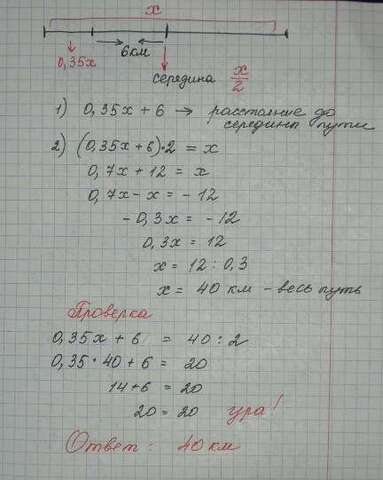 x
6км
0,35x
середина x/2
1) 0,35x + 6 → расстояние до
середины пути
2) (0,35x + 6)·2 = x
0,7x + 12 = x
0,7x - x = - 12
- 0,3x = - 12
0,3x = 12
x = 12 : 0,3
x = 40 км - весь путь
Проверка
0,35x + 6 = 40 : 2
0,35·40 + 6 = 20
14 + 6 = 20
20 = 20 ура!
Ответ: 40 км